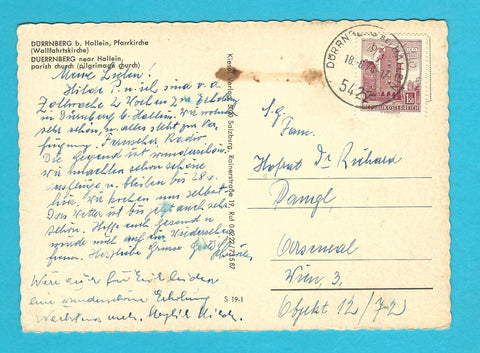 DÜRRNBERG b. Hallein, Pfarrkirche
(Wallfahrtskirche)
DUERRNBERG near Hallein,
parish church (pilgrimage church)
Meine Lieben!
Hilde u. ich sind v. d.
Zollwache 2 Wochen zur Erholung
in Dürnberg b. Hallein. Wir wohnen
sehr schön, u. alles steht zur Ver-
fügung. Fernseher Radio
Die Gegend ist wunderschön.
Wir machten schon schöne
Ausflüge u. bleiben bis 28.
Wir kochen uns selbst.
Das Wetter ist bis jetzt auch sehr
schön. Hoffe euch gesund u.
würde mich auf ein Wiedersehen
freuen. Herzliche Grüsse
eine wunderschöne Erholung
Verlag, 5020 Salzburg, Rainerstraße 19, Ruf 0 62 22 / 73 5 87
S 19-1
DÜRRNBERG BEI HALLEIN
5422
ÖSTERREICH
S. g.
Fam.
Hofrat Dr Richard
Dangl
Arsenal
Wien 3.
Objekt 12/72